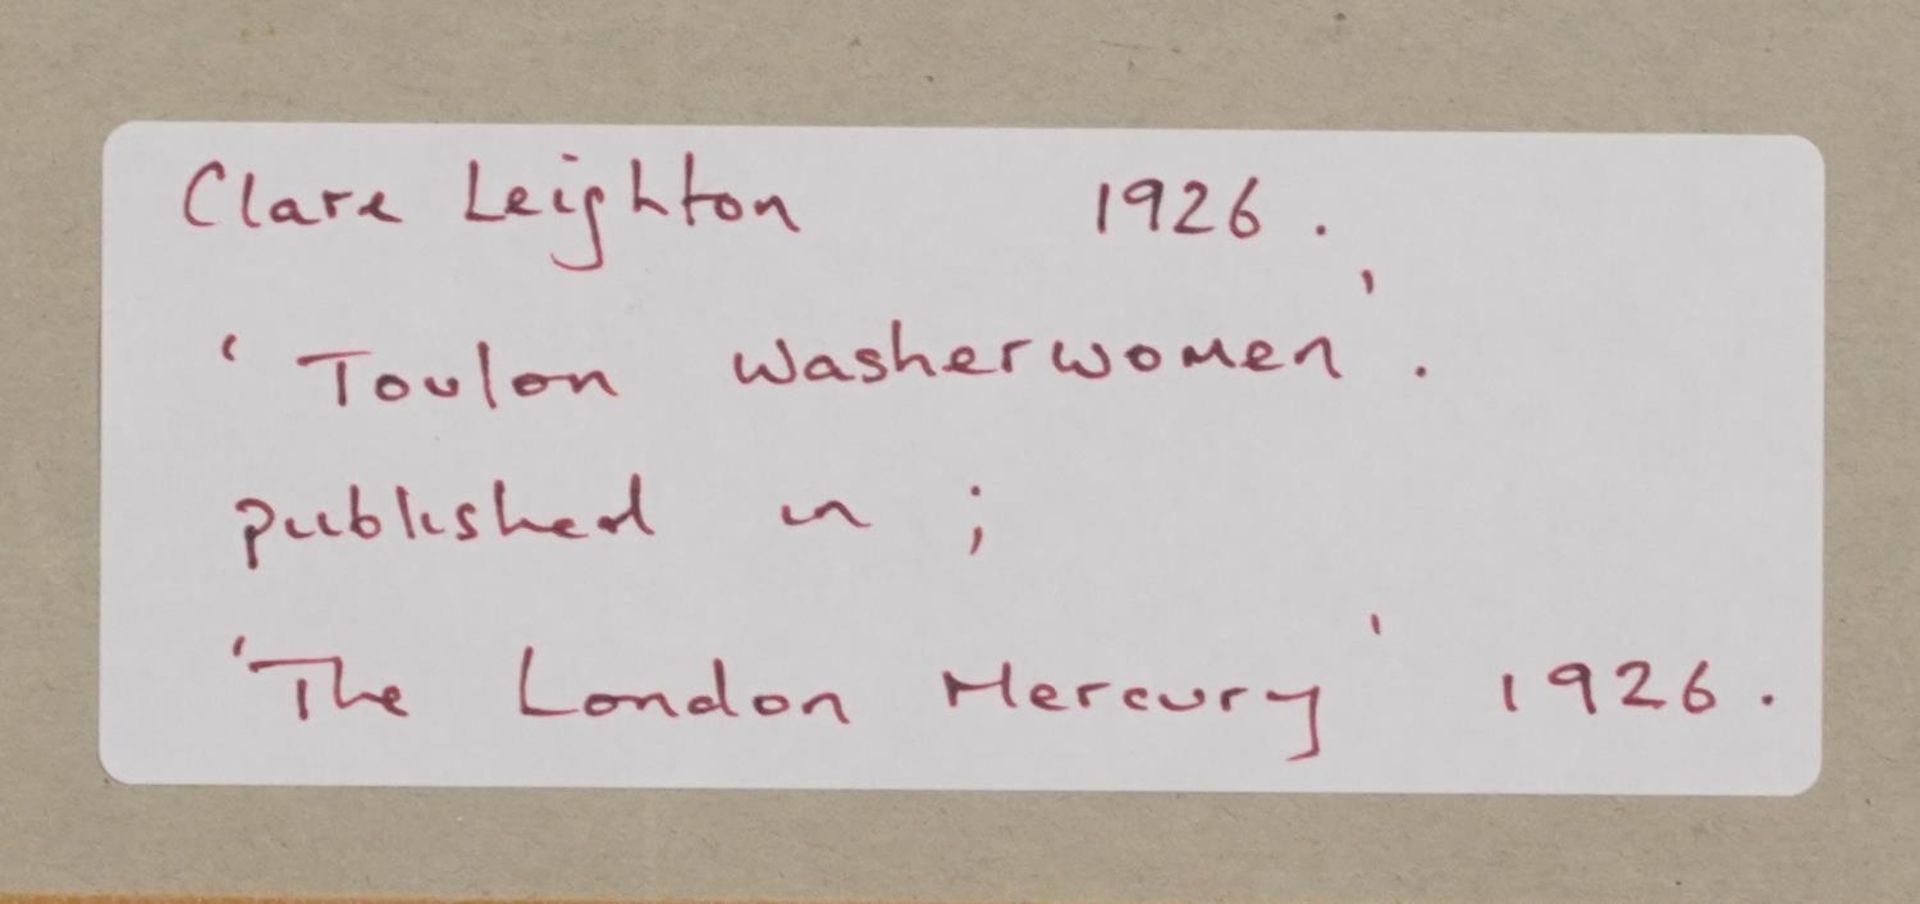 Clare Leighton 1926.
'Toulon washerwomen'.
published in ;
'The London Mercury' 1926.